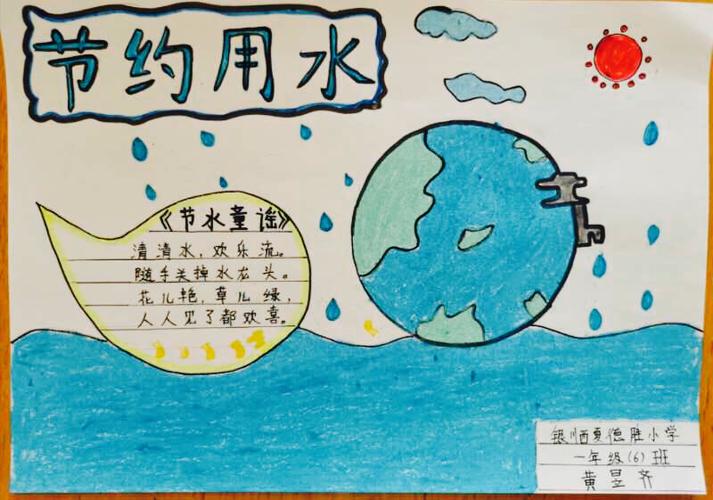 节约用水
《节水童谣》
清清水，欢乐流。
随手关掉水龙头。
花儿艳，草儿绿，
人人见了都欢喜。
银川西夏德胜小学
一年级(6)班
黄昱齐